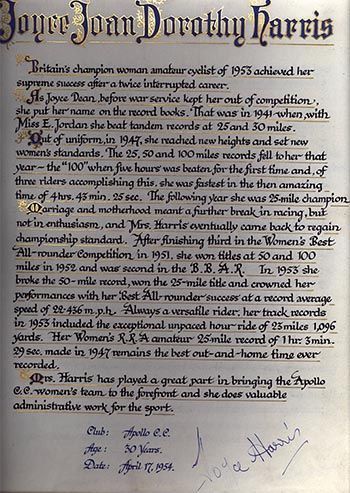 Joyce Joan Dorothy Harris
Britain's champion woman amateur cyclist of 1953 achieved her
supreme success after a twice interrupted career.
As Joyce Dean, before war service kept her out of competition,
she put her name on the record books. That was in 1941 when, with
Miss E. Jordan she beat tandem records at 25 and 30 miles.
Out of uniform, in 1947, she reached new heights and set new
women's standards. The 25, 50 and 100 miles records fell to her that
year – the "100" when five hours was beaten for the first time and, of
three riders accomplishing this, she was fastest in the then amazing
time of 4 hrs. 43 min. 25 sec. The following year she was 25-mile champion.
Marriage and motherhood meant a further break in racing, but
not in enthusiasm, and Mrs. Harris eventually came back to regain
championship standard. After finishing third in the Women's Best
All-rounder Competition, in 1951, she won titles at 50 and 100
miles in 1952 and was second in the B.B.A.R. In 1953 she
broke the 50-mile record, won the 25-mile title and crowned her
performances with her Best All-rounder success at a record average
speed of 22·436 m.p.h. Always a versatile rider, her track records
in 1953 included the exceptional unpaced hour ride of 23 miles 1,096
yards. Her Women's R.R.A amateur 25-mile record of 1 hr. 3 min.
29 sec. made in 1947 remains the best out-and-home time ever
recorded.
Mrs. Harris has played a great part in bringing the Apollo
C.C. women's team to the forefront and she does valuable
administrative work for the sport.
Club: Apollo C.C.
Age: 30 Years.
Date: April 17, 1954.
Joyce Harris